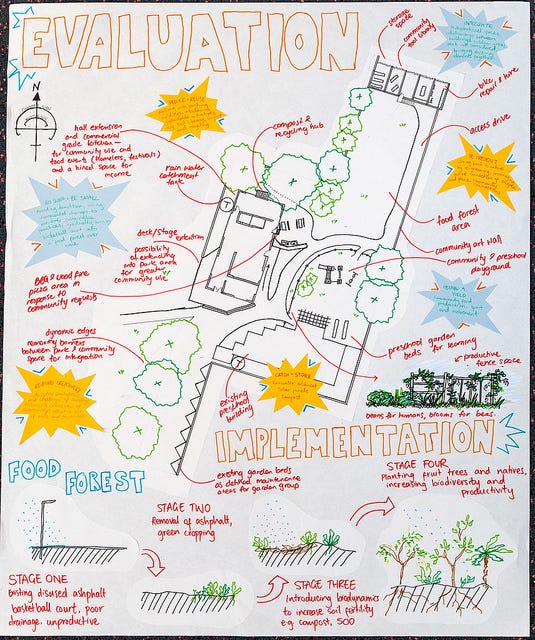 EVALUATION
N
storage
space
community
tool library
INTEGRATE
bike
repair & hire
access drive
hall extension
and commercial
grade kitchen -
for community use and
food events (Homeless, festivals)
and a hired space for
income
compost &
recycling hub
rain water
catchment
tank
T
food forest
area
community art wall
community & preschool
playground
deck/stage
extension
possibility
of extending
into park area
for greater
community use
BBQ & wood fire
pizza area in
response to
community requests
OBTAIN
A YIELD
dynamic edges
removing barriers
between park & community
space for integration
preschool garden
beds for learning
productive
fence space
CATCH + STORE
T
existing
preschool
building
beans for humans, blooms for bees.
IMPLEMENTATION
existing garden beds
as defined maintenance
areas for garden group
FOOD
FOREST
STAGE ONE
Existing disused ashphalt
basketball court, poor
drainage, unproductive
STAGE TWO
Removal of ashphalt,
green cropping
STAGE THREE
Introducing biodynamics
to increase soil fertility
e.g compost, 500
STAGE FOUR
Planting fruit trees and natives,
increasing biodiversity and
productivity